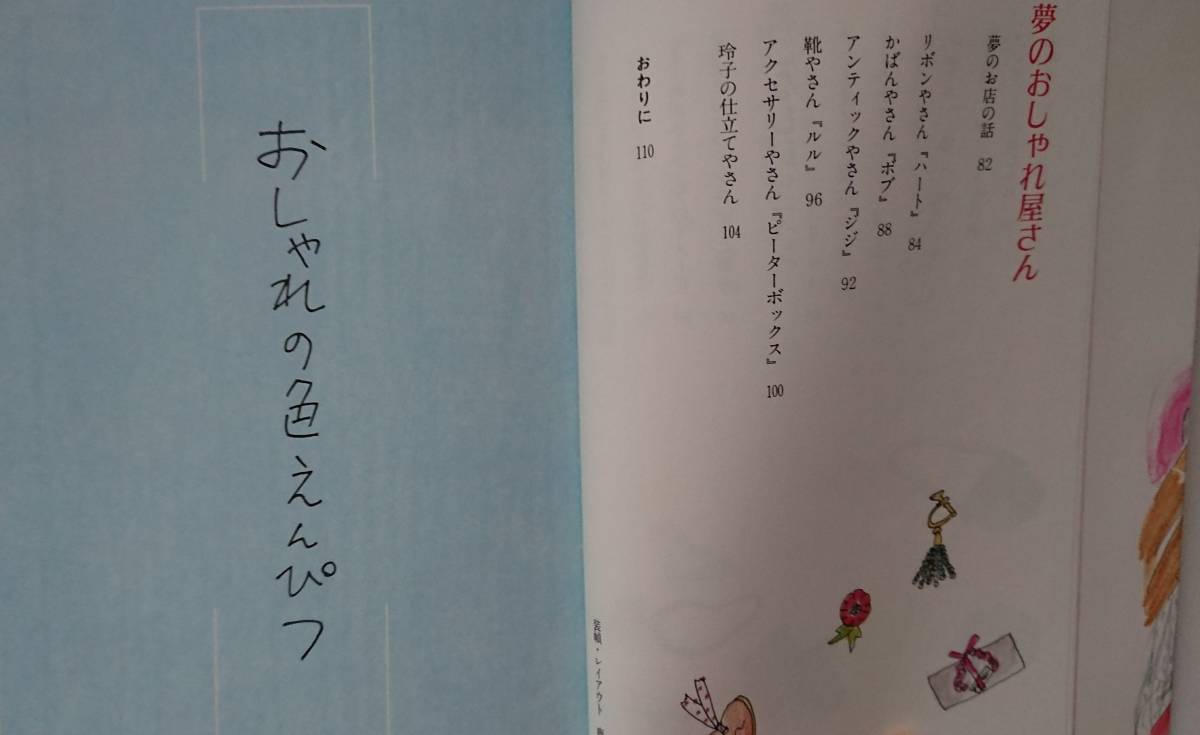 夢のおしゃれ屋さん
夢のお店の話 82
リボンやさん『ハート』 84
かばんやさん『ボブ』 88
アンティックやさん『ジジ』 92
靴やさん『ルル』 96
アクセサリーやさん『ピーターボックス』 100
玲子の仕立てやさん 104
おわりに 110
装幀・レイアウト
おしゃれの色えんぴつ